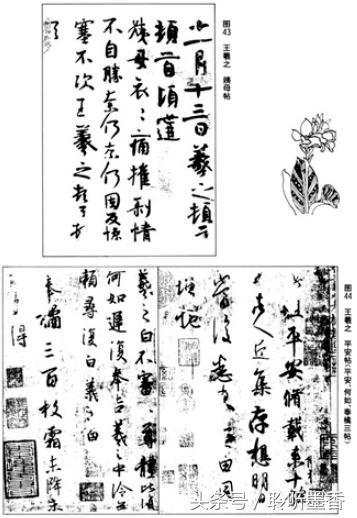 图43 王羲之 姨母帖
十一月十三日羲之頓首
頓首頃遘
姨母哀〻痛摧剝情
不自勝奈何奈何因反慘
塞不次王羲之頓首頓
首
图44 王羲之 平安帖（平安、何如、奉橘三帖）
此粗平安脩載來十
諸人近集存想明日
當復悉來無由同
增慨
羲之白不審尊體比復
何如遲復奉告羲之中冷無
賴尋復白羲之白
奉橘三百枚霜未降未
得
头条号 / 聆听墨香